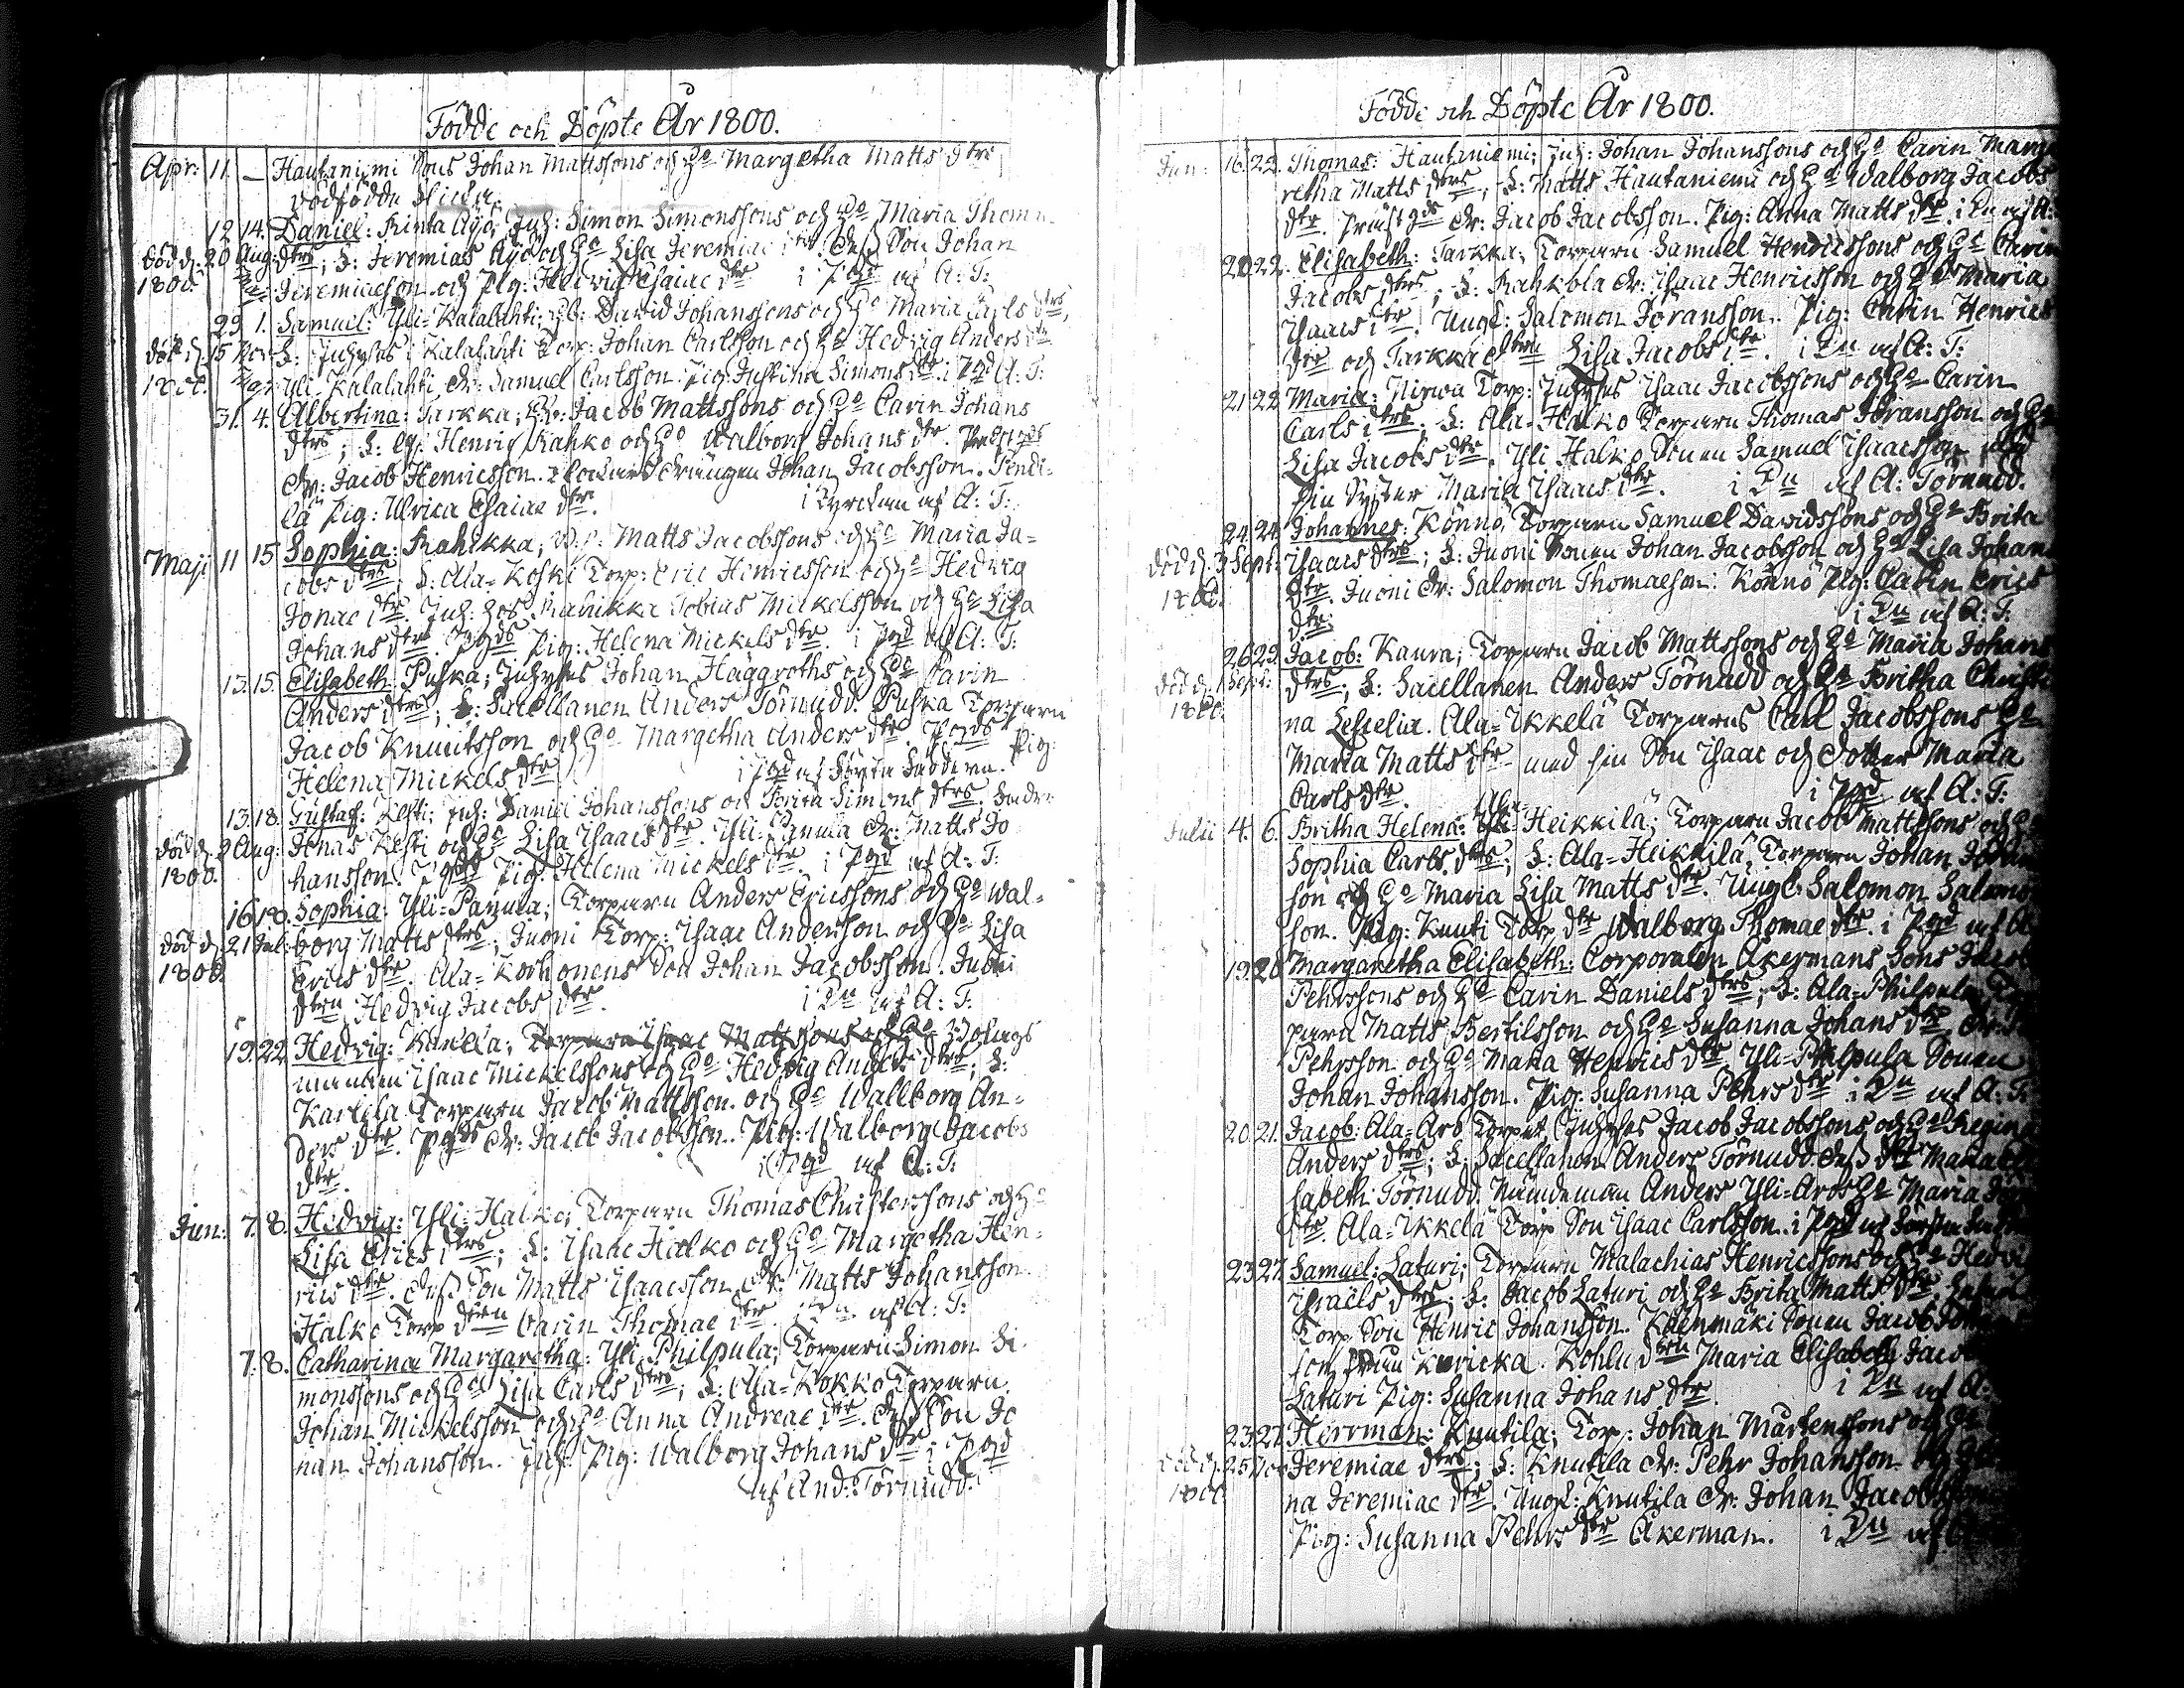 Födde och Döpte År 1800.
Apr: 11. — Hautaniemi Sons Johan Mattssons och H:o Margetha Matts dtrs
dödfödda
12. 14. Daniel: Rinta Äijö; Inh: Simon Simonssons och H:o Maria Thomæ
död d. 20 Aug: dtrs; S: Jeremias Äijö och H:o Lisa Jeremiae dtr. dess Son Johan
1800. Jeremiaeson och Pig: Hedvig Esaiae dtr i Pgd af A: T:
Maj
29 1. Samuel: Yli-Kalalahti; David Johanssons och H:o Maria Carls dtrs,
död d. 15 Nov: S: Inhyses i Kalalahti Torp: Johan Carlsson och H:o Hedvig Anders dtr
1800. Yli-Kalalahti dr: Samuel Carlsson. Pig: Justina Simons dtr. i Pgd A: T:
31. 4. Albertina: Tarkka; Jacob Mattssons och H:o Carin Johans
dtrs; S: Henric Rahko och H:o Walborg Johans dtr. Prestgds
dr: Jacob Henricsson. drängen Johan Jacobsson. Pendi-
lä Pig: Ulrica Esaiae dtr. i Kyrckan af A: T:
Maji 11 15 Sophia: Rahikka; Matts Jacobssons och H:o Maria Ja-
cobs dtrs; S: Ala-Koski Torp: Eric Henricsson och H:o Hedvig
Jonae dtr. Inh: hos Rahikka Tobias Mickelsson och H:o Lisa
Johans dtr. Pgds Pig: Helena Mickels dtr. i Pgd af A: T:
13. 15. Elisabeth: Puska; Inhyses Johan Häggroths och H:o Carin
Anders dtrs; S: Sacellanen Anders Törnudd. Puska Torparn
Jacob Knuutsson och H:o Margetha Anders dtr. Pgds Pig:
Helena Mickels dtr i Pgd af
13. 18. Gustaf: Kesti; Inh: Daniel Johanssons och Brita Simons dtrs.
död d. 9 Aug: Jonas Kesti och H:o Lisa Isaacs dtr. Yli-Pannula dr: Matts Jo-
1800. hansson. Pgds Pig: Helena Mickels dtr. i Pgd af A: T:
16. 18. Sophia: Yli-Pannula; Torparn Anders Ericssons och H:o Wal-
död d. 21 Jul: borg Matts dtrs; Juoni Torp: Isaac Andersson och H:o Lisa
1800. Erics dtr. Ala-Korhonens Son Johan Jacobsson. Juoni
dtrn Hedvig Jacobs dtr. i Dn af A: T:
19. 22. Hedvig: Kanila; Torparn Isaac Mattssons och H:o Bolags
mannen Isaac Mickelssons och H:o Hedvig Anders dtrs; S:
Karlila Torparn Jacob Mattsson och H:o Wallborg An-
ders dtr. Pgds dr: Jacob Jacobsson. Pig: Walborg Jacobs
dtr. i Pgd af A: T:
Jun: 7. 8. Hedvig: Yli-Halko; Torparn Thomas Christerssons och H:o
Lisa Erics dtrs; S: Isaac Halko och H:o Margetha Hen-
rics dtr. dess Son Matts Isaacsson dr: Matts Johansson
Halko Torp dtrn Carin Thomae dtr. i Dn af A: T:
7. 8. Catharina Margaretha: Yli Philpula; Torparn Simon Si-
monssons och H:o Lisa Carls dtrs; S: Ala-Kokko Torparn
Johan Mickelsson och H:o Anna Andreae dtr. dess Son Jo
han Johansson. Inh: Pig: Walborg Johans dtr i Pgd
af And: Törnudd:
Födde och Döpte År 1800.
Jun: 16. 22. Thomas: Hautaniemi; Inh: Johan Johanssons och H:o Carin Marga
retha Matts dtrs; S: Matts Hautaniemi och H:o Walborg Jacobs
dtr. Prästgds dr: Jacob Jacobsson. Pig: Anna Matts dtr. i Dn af A:
20 22. Elisabeth: Tarkka; Torparn Samuel Hendricssons och H:o Carin
Jacobs dtrs; S: Rahkola dr: Isaac Henricsson och H:o Maria
Isaacs dtr. Ungk: Salomon Jöransson. Pig: Carin Henrics
dtr och Tarkka dtrn Lisa Jacobs dtr. i Dn af A: T:
21 22 Maria: Nirwa Torp: Inhyses Isaac Jacobssons och H:o Carin
Carls dtrs; S: Ala-Halko Torparn Thomas Jöransson och H:o
Lisa Jacobs dtr. Yli Halko Sonen Samuel Isaacsson och
Sin Syster Maria Isaacs dtr. i Dn af A: Törnudd.
24. 24. Johannes: Könnö Torparn Samuel Davidssons och H:o Brita
död d. 3 Sept: Isaacs dtrs; S: Juoni Sonen Johan Jacobsson och H:o Lisa Johans
1800. dtr. Juoni dr: Salomon Thomaeson. Könnö Pig: Carin Erics
dtr: i Dn af A: T:
26. 29. Jacob: Kaura; Torparn Jacob Mattssons och H:o Maria Johans
död d. 1 Sept: dtrs; S: Sacellanen Anders Törnudd och H:o Britha Christi
1800. na Lescelia. Ala-Ikkelä Torparns Carl Jacobssons H:o
Maria Matts dtr med sin Son Isaac och dotter Maria
Carls dtr. i Pgd af A: T:
Julii 4. 6. Britha Helena: Yli Ala-Heikkilä; Torparn Jacob Mattssons och H:o
Sophia Carls dtrs; S: Ala-Heikkilä Torparn Johan Johan
son och H:o Maria Lisa Matts dtr. Ungk: Salomon Salomo
son. Pig: Knuti Torp dtr Walborg Thomae dtr. i Pgd af A
19. 20 Margaretha Elisabeth: Corporalen Åkermans Sons Jacob
Pehrssons och H:o Carin Daniels dtrs; S: Ala-Philpula Tor
parn Matts Bertilsson och H:o Susanna Johans dtr. dr:
Pehrsson och H:o Maria Henrics dtr. Yli-Philpula Sonen
Johan Johansson. Pig: Susanna Pehrs dtr i Dn af A: T:
20. 21. Jacob: Ala-Aro Torpet Inhyses Jacob Jacobssons och H:o Regina
Anders dtrs; S: Sacellanen Anders Törnudd dess dtr Maria E
lisabeth Törnudd. Nämdeman Anders Yli-Aros H:o Maria
dtr. Ala-Ikkelä Torp Son Isaac Carlsson. i Pgd af
23 27. Samuel: Laturi; Torparn Malachias Henricssons och H:o Hedvi
Israëls dtrs; S: Jacob Laturi och H:o Brita Matts dtr.
Torp Son Henric Johansson. Koenmäki Sonen Jacob Johan
son från Kuricka. Kohlu dtrn Maria Elisabeth Jacob
Laturi Pig: Susanna Johans dtr. i Dn af A:
23. 27. Herrman: Knutila; Torp: Johan Mårtenssons och H:o
död d. 25 Dec Jeremiae dtrs; S: Knutila dr: Pehr Johansson och
1800. na Jeremiae dtr. Ungk: Knutila dr: Johan Jacobs
Pig: Susanna Pehrs dtr Åkerman. i Dn af